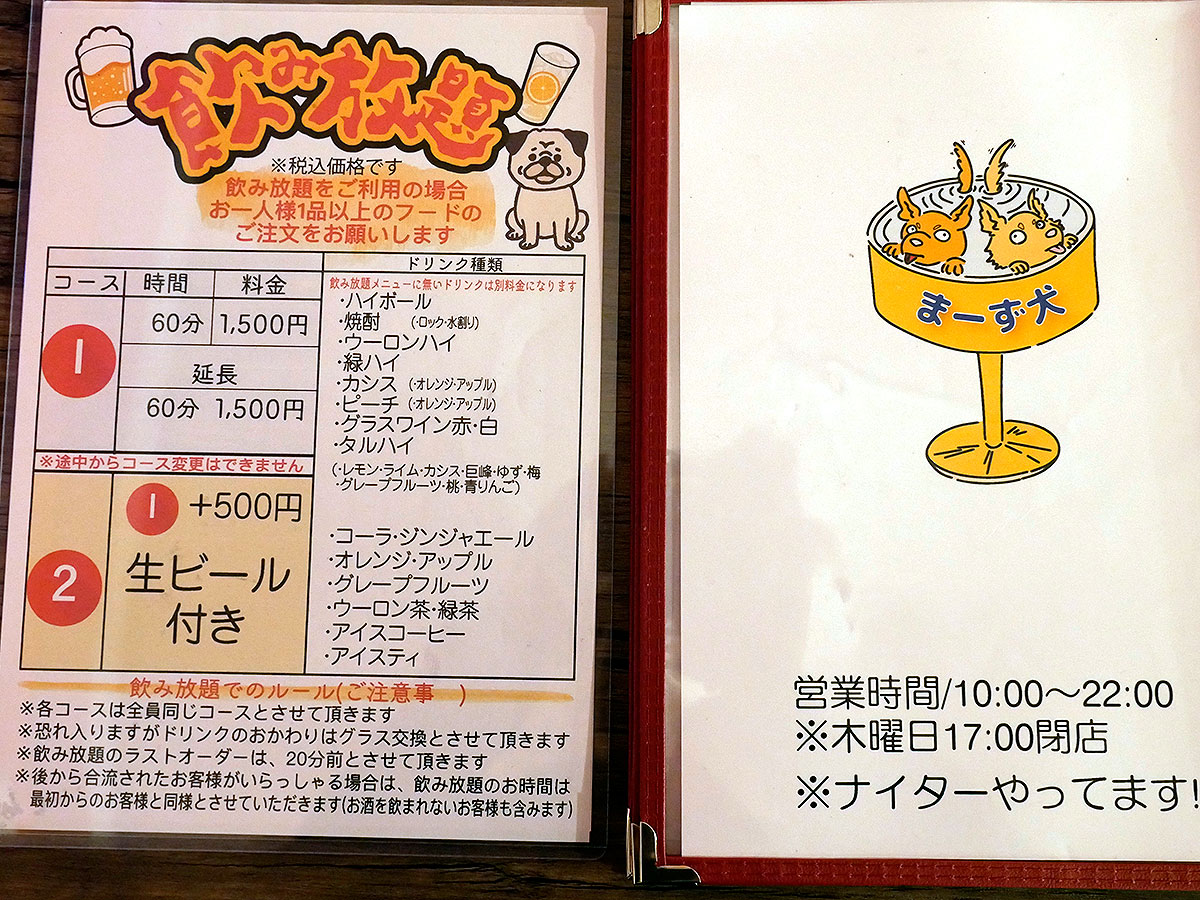 飲み放題
※税込価格です
飲み放題をご利用の場合
お一人様1品以上のフードの
ご注文をお願いします
コース 時間 料金
1 60分 1,500円
延長
60分 1,500円
※途中からコース変更はできません
2 1 +500円
生ビール
付き
ドリンク種類
飲み放題メニューに無いドリンクは別料金になります
・ハイボール
・焼酎 (・ロック・水割り)
・ウーロンハイ
・緑ハイ
・カシス (・オレンジ・アップル)
・ピーチ (・オレンジ・アップル)
・グラスワイン赤・白
・タルハイ
(・レモン・ライム・カシス・巨峰・ゆず・梅
・グレープフルーツ・桃・青りんご)
・コーラ・ジンジャエール
・オレンジ・アップル
・グレープフルーツ
・ウーロン茶・緑茶
・アイスコーヒー
・アイスティ
飲み放題でのルール(ご注意事 )
※各コースは全員同じコースとさせて頂きます
※恐れ入りますがドリンクのおかわりはグラス交換とさせて頂きます
※飲み放題のラストオーダーは、20分前とさせて頂きます
※後から合流されたお客様がいらっしゃる場合は、飲み放題のお時間は
最初からのお客様と同様とさせていただきます(お酒を飲まれないお客様も含みます)
まーず犬
営業時間/10:00～22:00
※木曜日17:00閉店
※ナイターやってます!